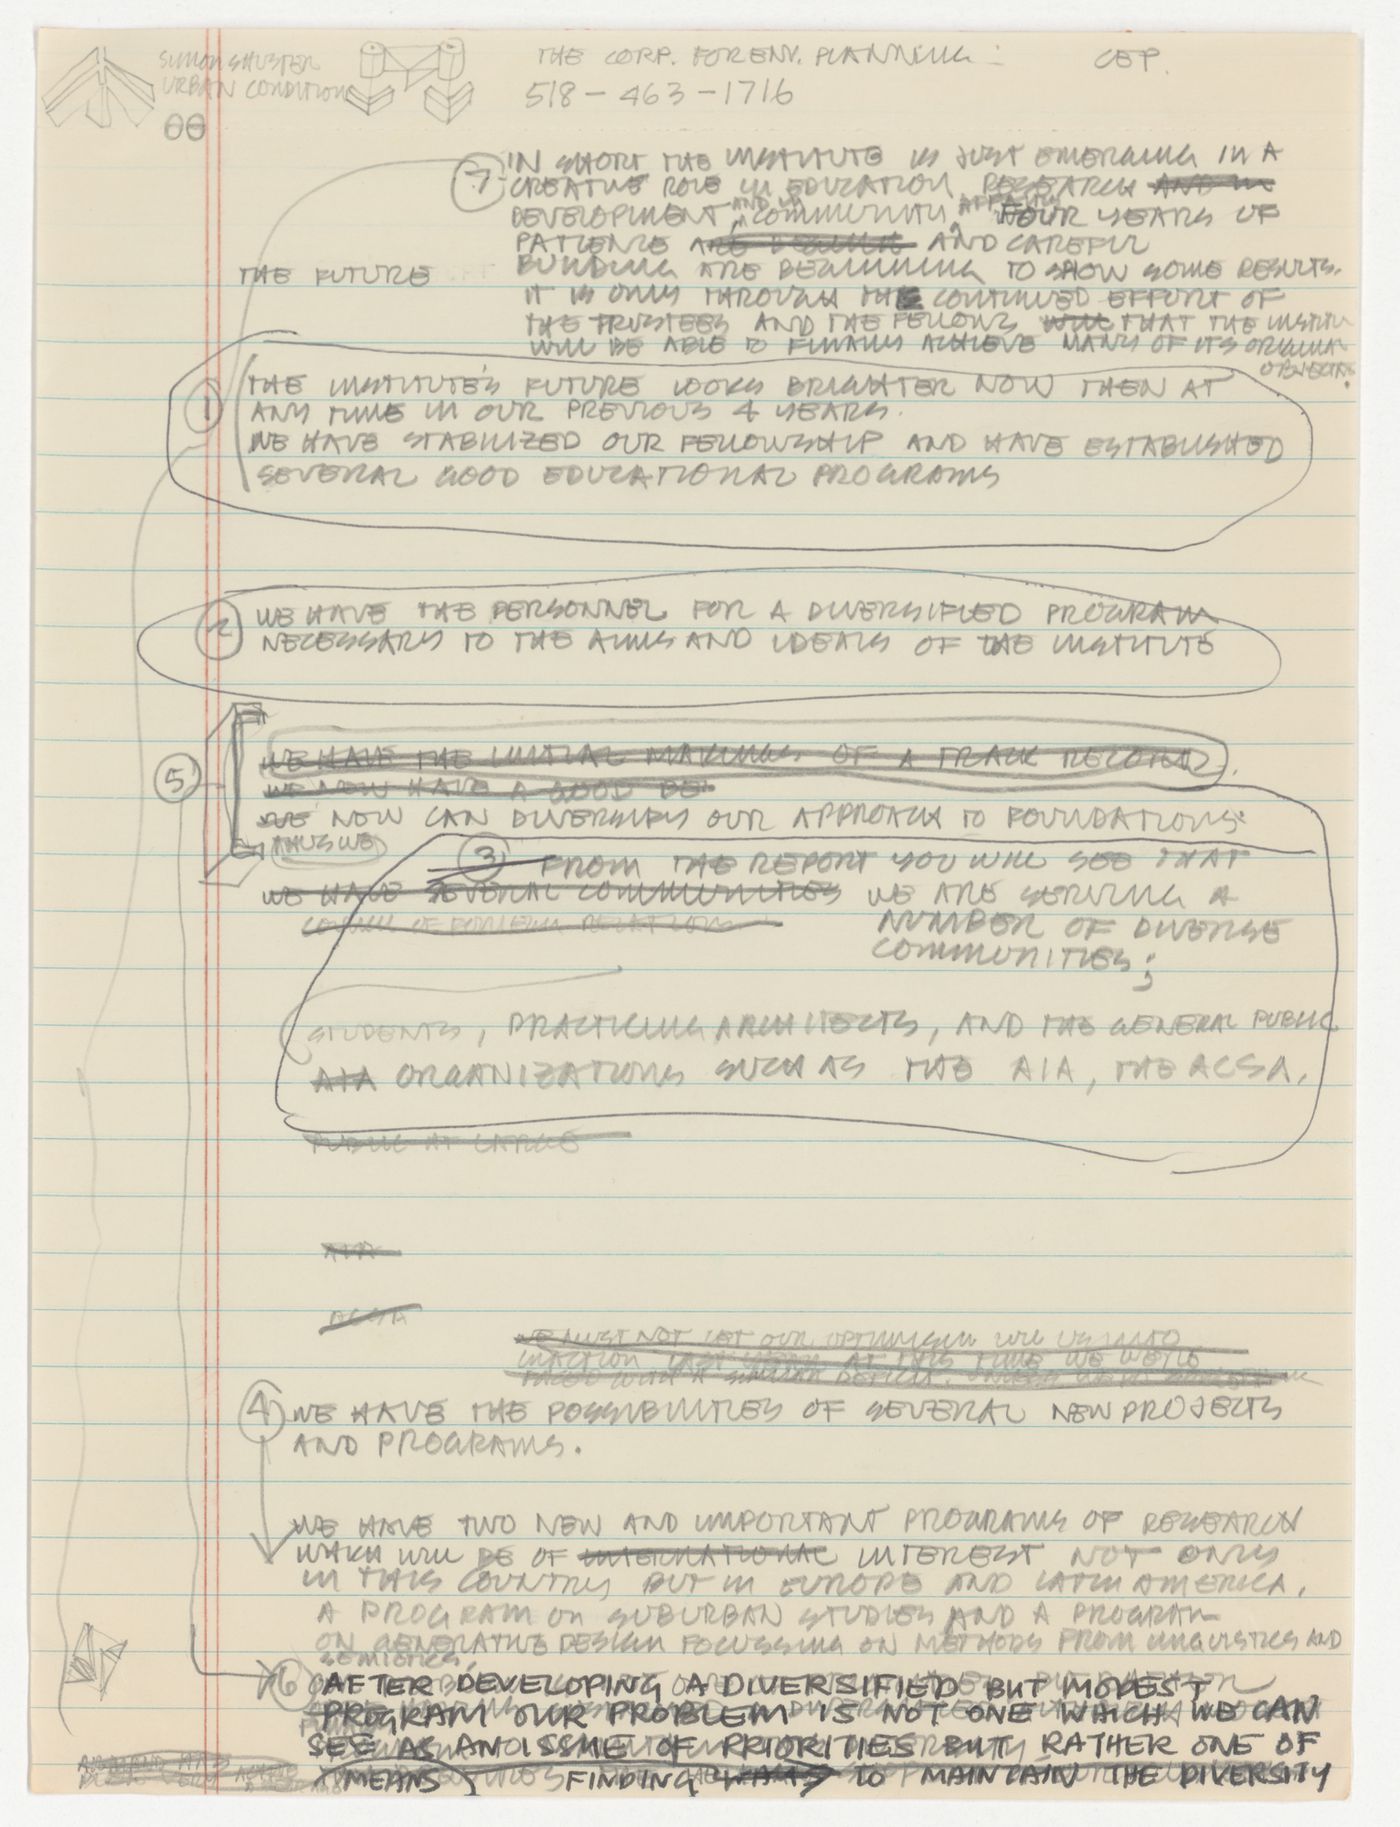 SIMON SHUSTER
URBAN CONDITION
THE CORP. FOR ENV. PLANNING:
CEP.
518-463-1716
7 IN SHORT THE INSTITUTE IS JUST EMERGING IN A
CREATIVE ROLE IN EDUCATION, RESEARCH AND IN
DEVELOPMENT, AND IN COMMUNITY AFFAIRS. FOUR YEARS OF
PATIENCE AND CAREFUL
BUILDING ARE BEGINNING TO SHOW SOME RESULTS.
IT IS ONLY THROUGH THE CONTINUED EFFORT OF
THE TRUSTEES AND THE FELLOWS WILL THAT THE INSTITU
WILL BE ABLE TO FINALLY ACHIEVE MANY OF ITS ORIGINAL
OBJECTIVES.
THE FUTURE
1 THE INSTITUTE'S FUTURE LOOKS BRIGHTER NOW THEN AT
ANY TIME IN OUR PREVIOUS 4 YEARS.
WE HAVE STABILIZED OUR FELLOWSHIP AND HAVE ESTABLISHED
SEVERAL GOOD EDUCATIONAL PROGRAMS
2 WE HAVE THE PERSONNEL FOR A DIVERSIFIED PROGRAM
NECESSARY TO THE AIMS AND IDEALS OF THE INSTITUTE
5 WE HAVE THE INITIAL MAKINGS OF A TRACK RECORD.
WE NOW HAVE A GOOD DE
WE NOW CAN DIVERSIFY OUR APPROACH TO FOUNDATIONS:
THUS WE
3 FROM THE REPORT YOU WILL SEE THAT
WE HAVE SEVERAL COMMUNITIES WE ARE SERVING A
COUNCIL OF FOREIGN RELATIONS NUMBER OF DIVERSE
COMMUNITIES;
STUDENTS, PRACTICING ARCHITECTS, AND THE GENERAL PUBLIC
AIA ORGANIZATIONS SUCH AS THE AIA, THE ACSA,
PUBLIC AT LARGE
AIA
ACSA
WE MUST NOT LET OUR OPTIMISM LULL US INTO
INACTION LAST YEAR AT THIS TIME WE WERE
FACED WITH A SIMILAR DEFICIT.
4 WE HAVE THE POSSIBILITIES OF SEVERAL NEW PROJECTS
AND PROGRAMS.
WE HAVE TWO NEW AND IMPORTANT PROGRAMS OF RESEARCH
WHICH WILL BE OF INTERNATIONAL INTEREST NOT ONLY
IN THIS COUNTRY BUT IN EUROPE AND LATIN AMERICA.
A PROGRAM ON SUBURBAN STUDIES AND A PROGRAM
ON GENERATIVE DESIGN FOCUSSING ON METHODS FROM LINGUISTICS AND
SEMIOTICS.
6 AFTER DEVELOPING A DIVERSIFIED BUT MODEST
PROGRAM OUR PROBLEM IS NOT ONE WHICH WE CAN
SEE AS AN ISSUE OF PRIORITIES BUT RATHER ONE OF
MEANS FINDING WAYS TO MAINTAIN THE DIVERSITY